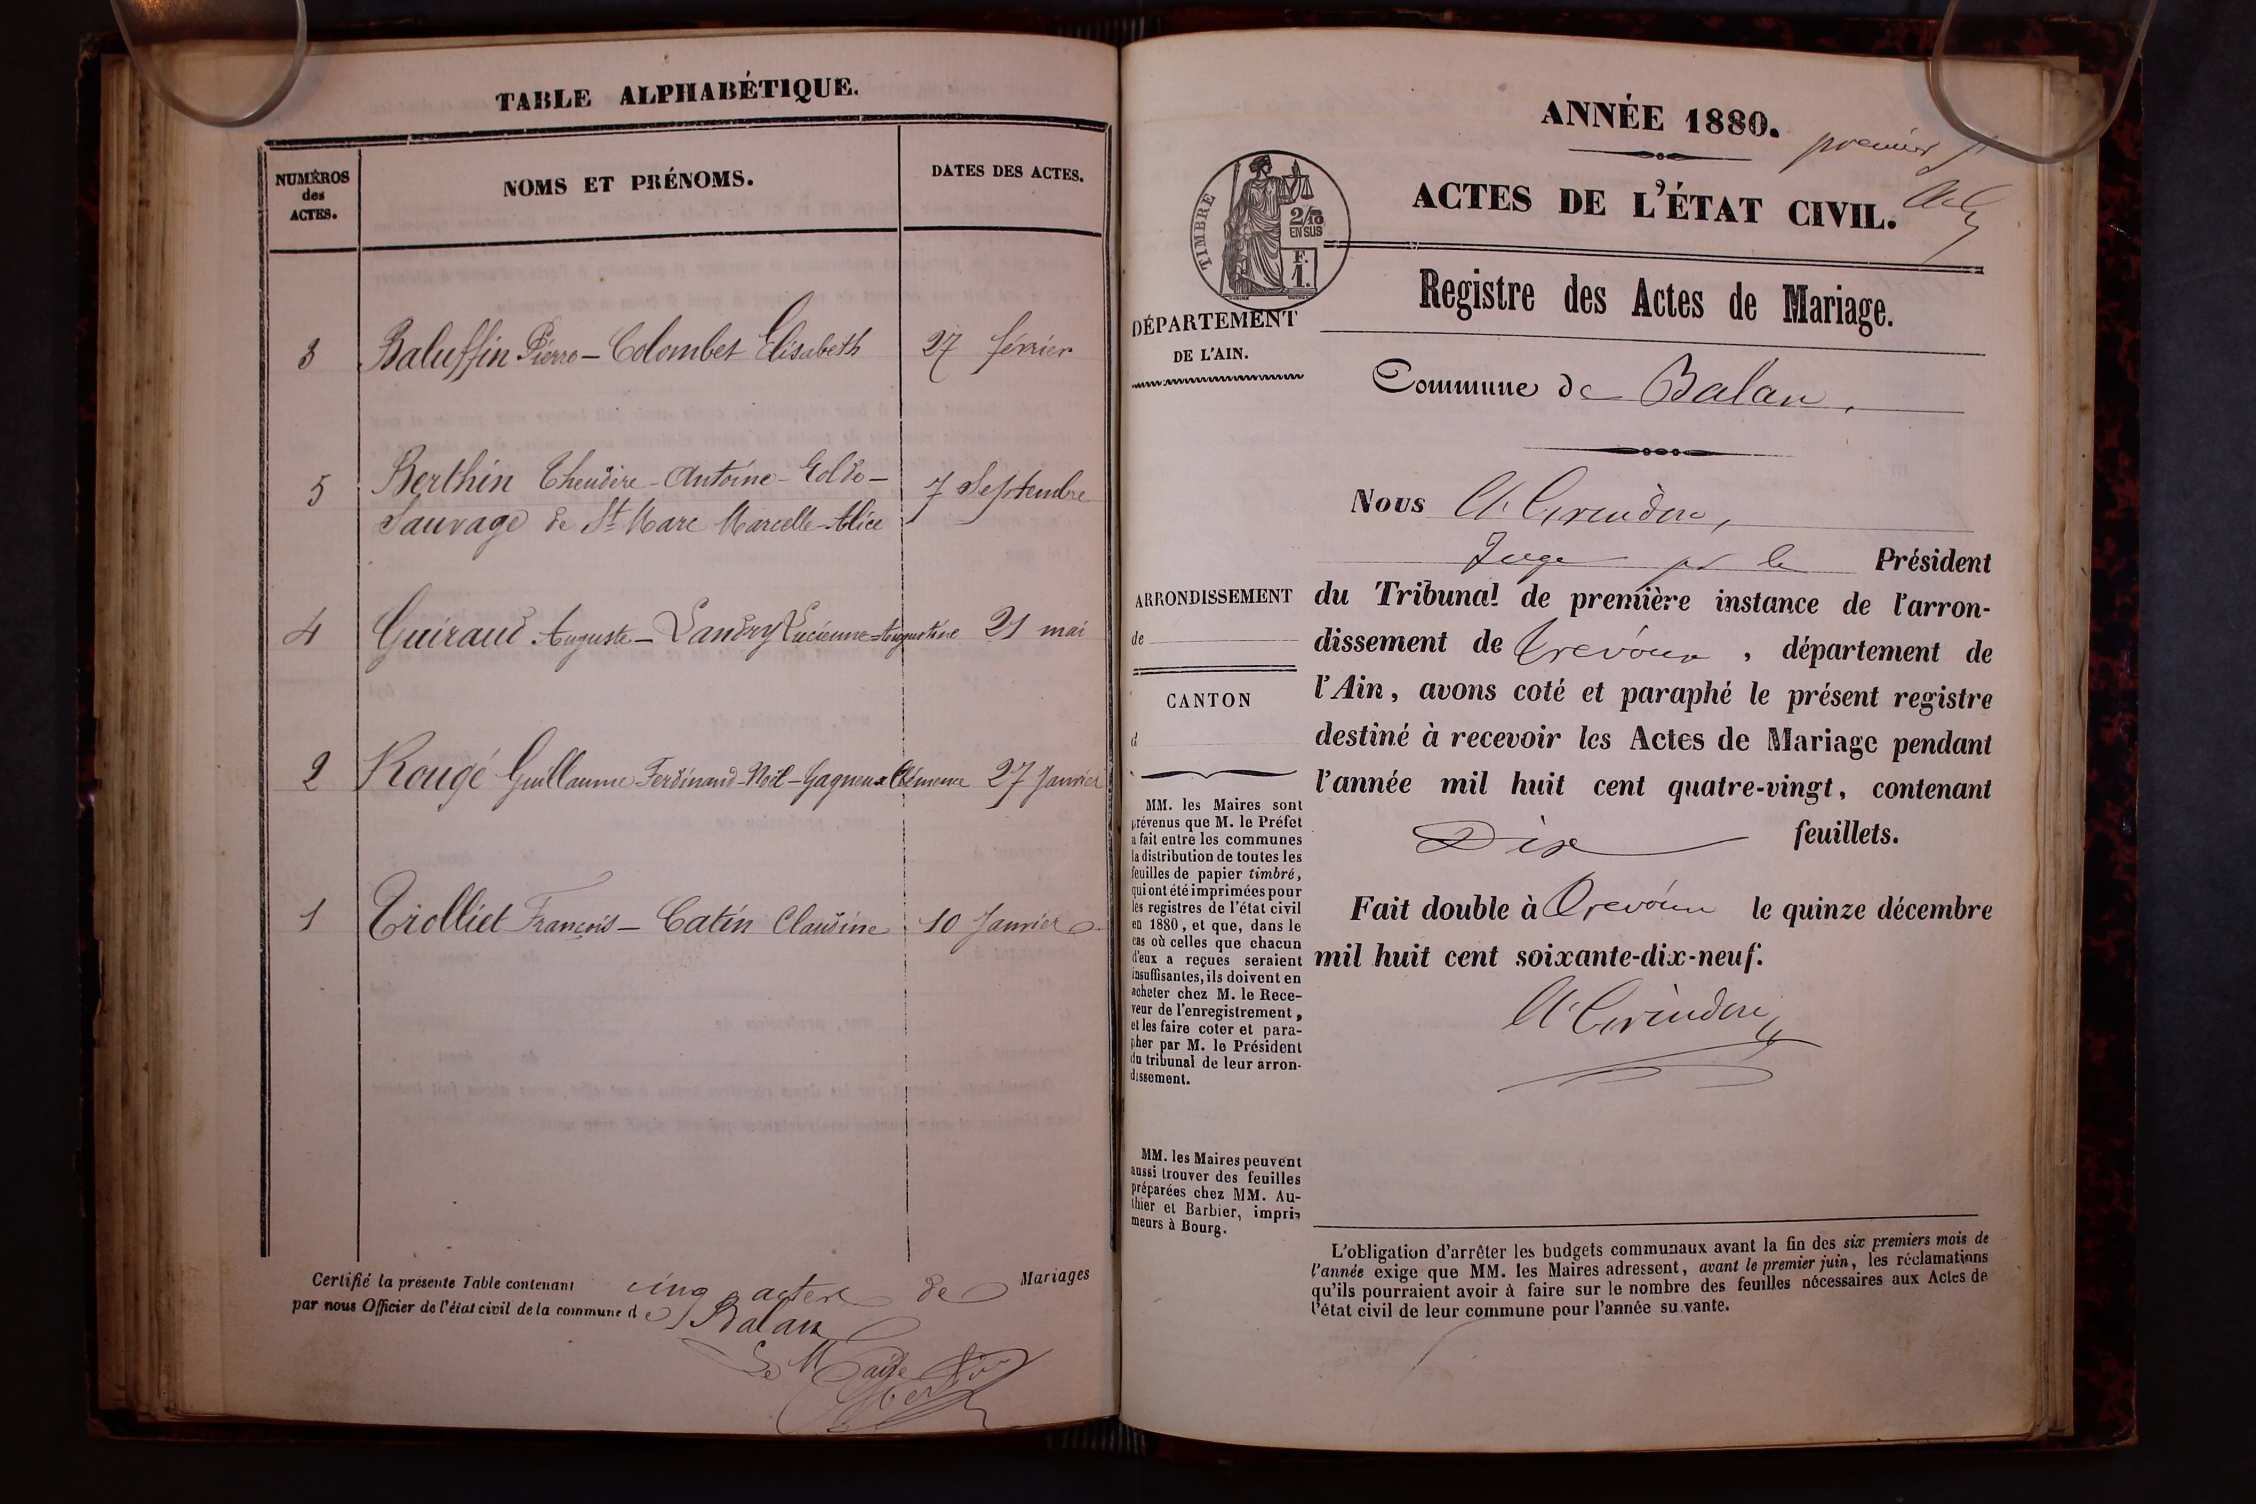 TABLE ALPHABÉTIQUE.
NUMÉROS
des
ACTES.
NOMS ET PRÉNOMS.
DATES DES ACTES.
3 Baluffin Pierre – Colombet Elisabeth 27 février
5 Berthin Antoine –
Sauvage de St Marc Marcelle-Alice 7 Septembre
4 Guiraud Auguste – Landry Lucienne-Augustine 21 mai
2 Rougé Guillaume Ferdinand-Noël – Gagneux Clémence 27 Janvier
1 Triolliet François – Catin Claudine 10 Janvier
Certifié la présente Table contenant cinq actes de Mariages
par nous Officier de l'état civil de la commune de Balan
Le Maire
ANNÉE 1880.
premier
ACTES DE L'ÉTAT CIVIL.
TIMBRE
2/10
EN SUS
F.
1.
Registre des Actes de Mariage.
DÉPARTEMENT
DE L'AIN.
Commune de Balan,
Nous
Juge pr le Président
du Tribunal de première instance de l'arron-
dissement de Trévoux, département de
l'Ain, avons coté et paraphé le présent registre
destiné à recevoir les Actes de Mariage pendant
l'année mil huit cent quatre-vingt, contenant
Dix feuillets.
Fait double à Trévoux le quinze décembre
mil huit cent soixante-dix-neuf.
ARRONDISSEMENT
de
CANTON
d
MM. les Maires sont
prévenus que M. le Préfet
a fait entre les communes
la distribution de toutes les
feuilles de papier timbré,
qui ont été imprimées pour
les registres de l'état civil
en 1880, et que, dans le
cas où celles que chacun
d'eux a reçues seraient
insuffisantes, ils doivent en
acheter chez M. le Rece-
veur de l'enregistrement,
et les faire coter et para-
pher par M. le Président
du tribunal de leur arron-
dissement.
MM. les Maires peuvent
aussi trouver des feuilles
préparées chez MM. Au-
thier et Barbier, impri-
meurs à Bourg.
L'obligation d'arrêter les budgets communaux avant la fin des six premiers mois de
l'année exige que MM. les Maires adressent, avant le premier juin, les réclamations
qu'ils pourraient avoir à faire sur le nombre des feuilles nécessaires aux Actes de
l'état civil de leur commune pour l'année suivante.